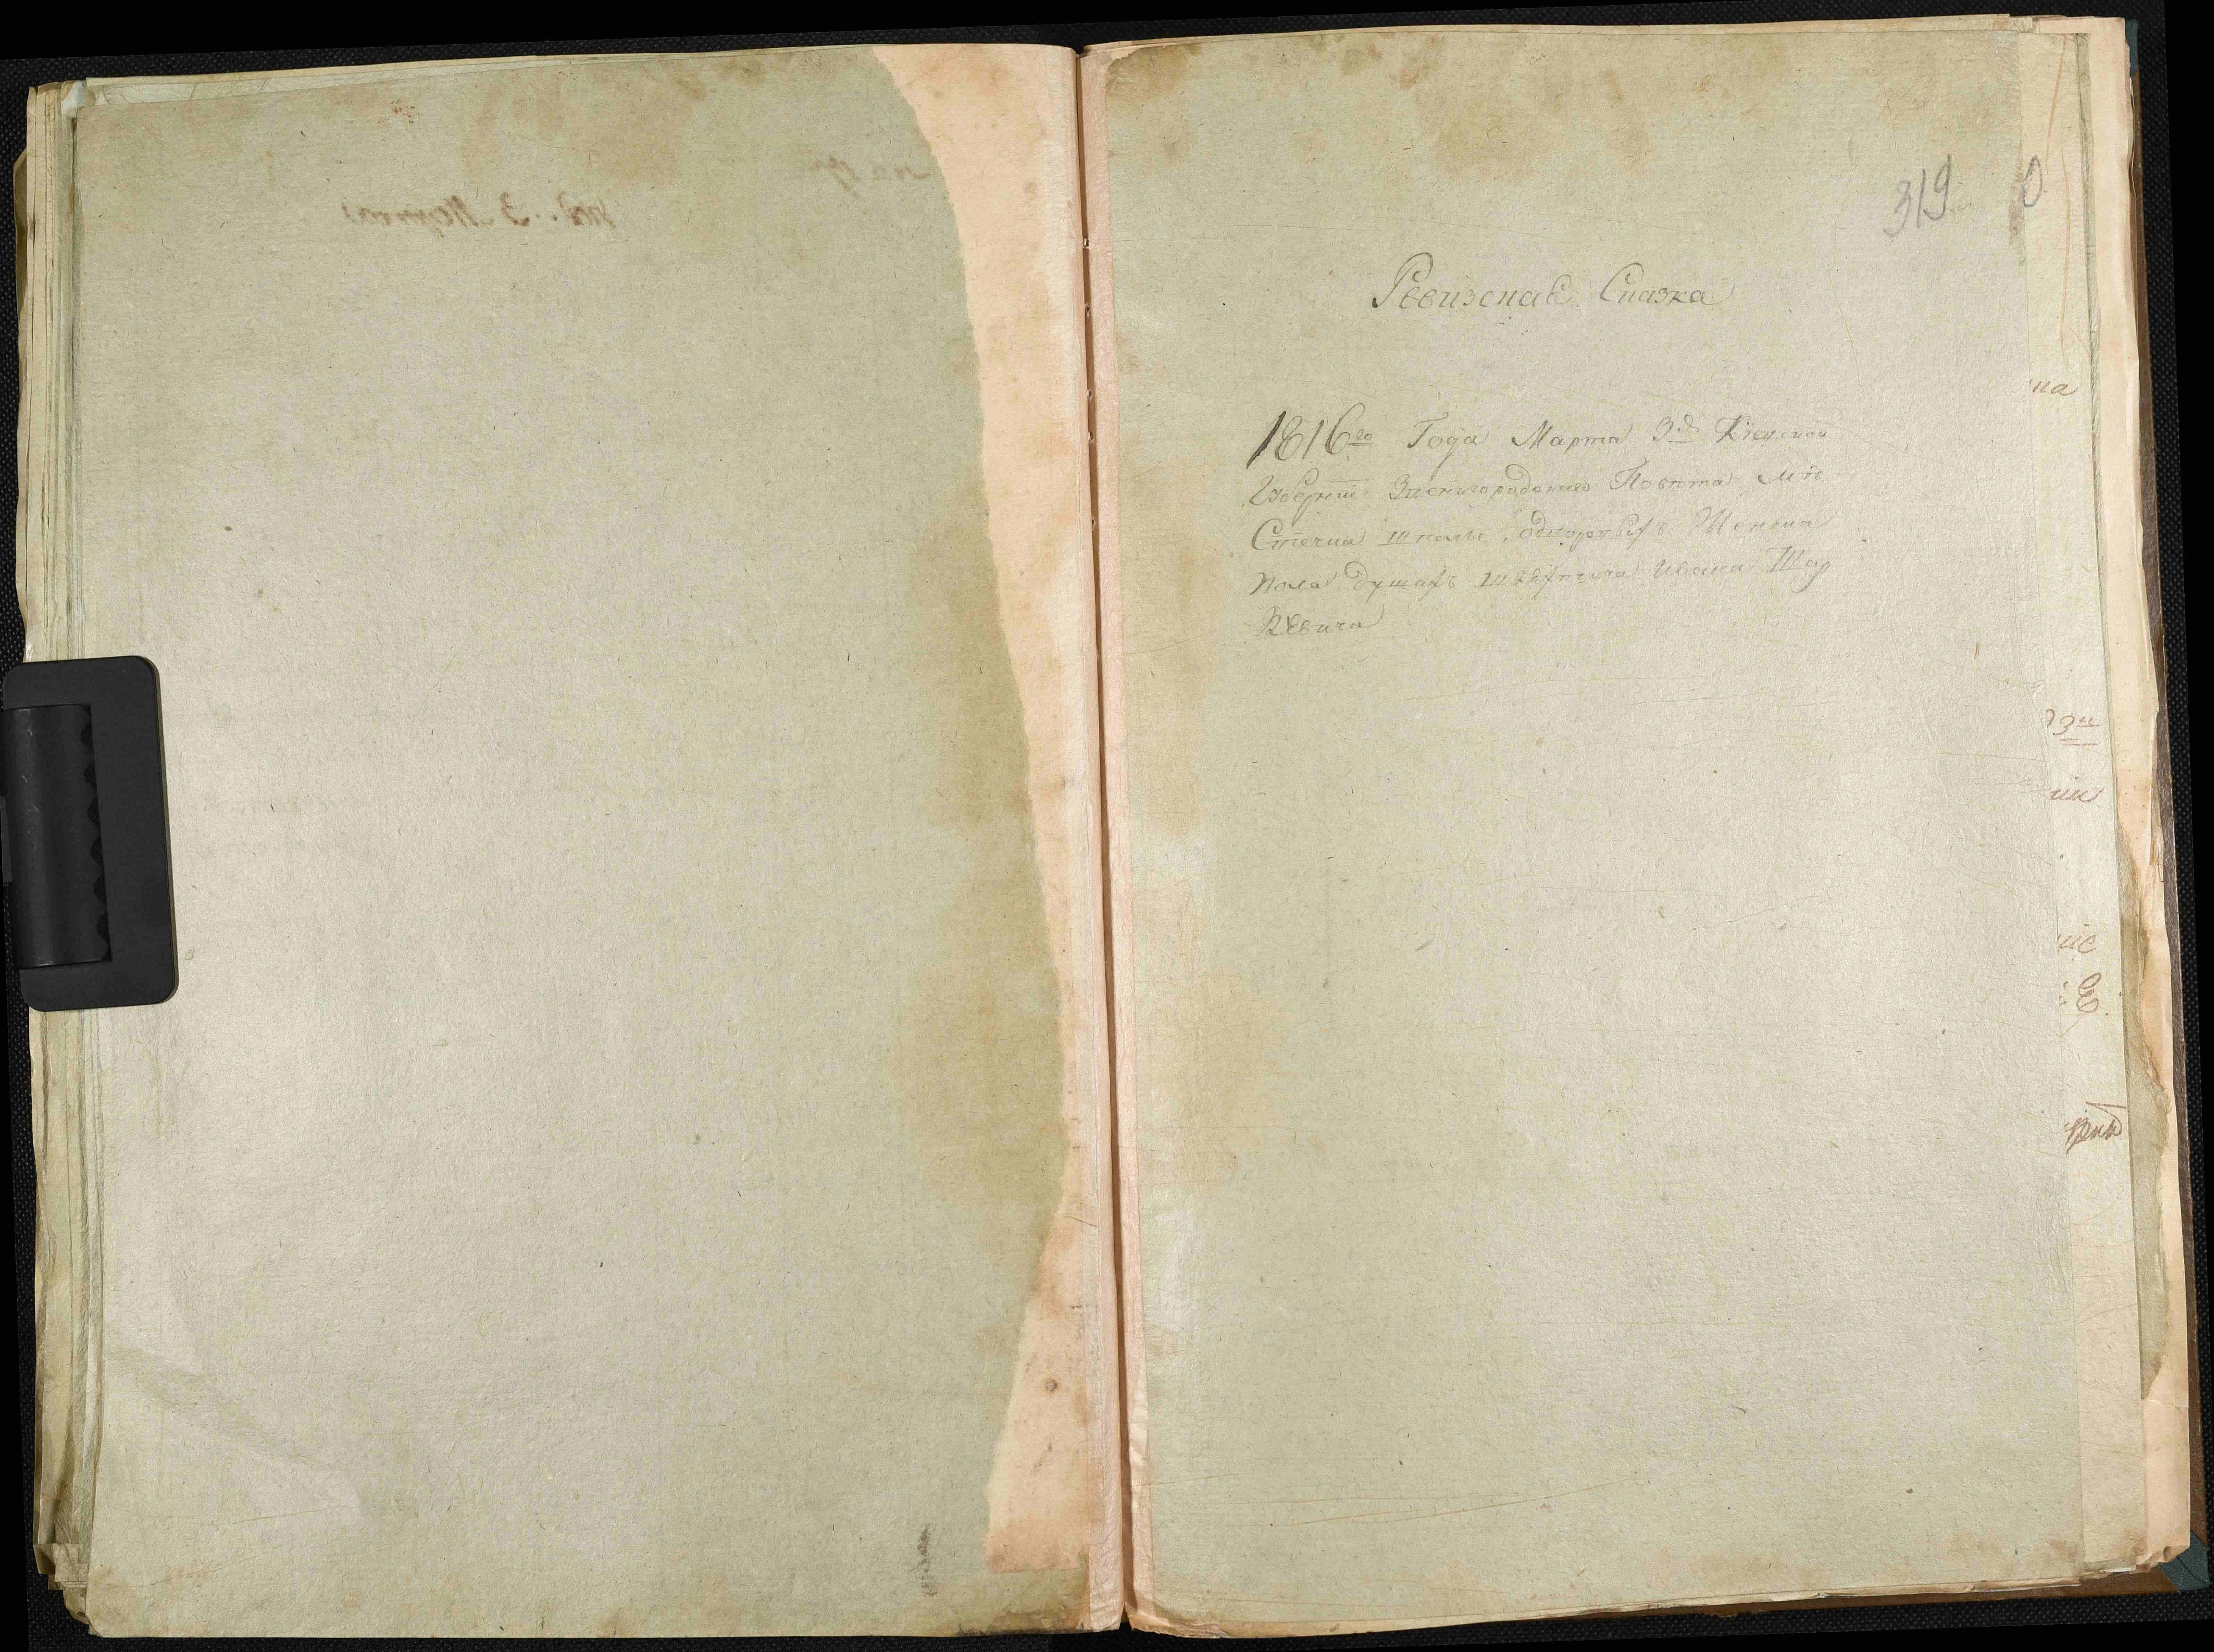 319
Ревизская Сказка
1816го Года Марта 3д Киевской
Губернїи Звенигородского Повѣта Мѣ
Стечка Шполы, о дворовыхъ Женска
Пола душахъ шляхтича Ивана Шар
Кевича